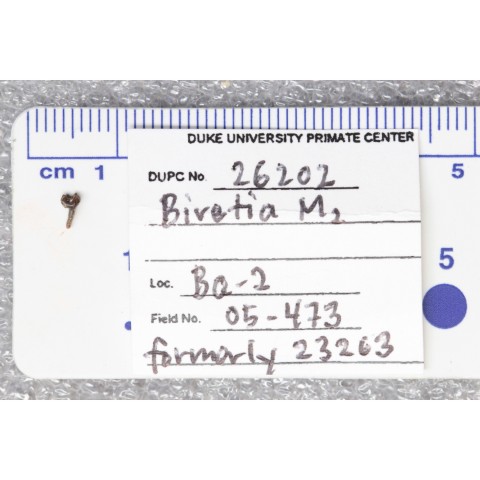 DUKE UNIVERSITY PRIMATE CENTER
cm 1 5
DUPC No. 26202
Biretia M2
1 5
Loc. BQ-2
Field No. 05-473
formerly 23263